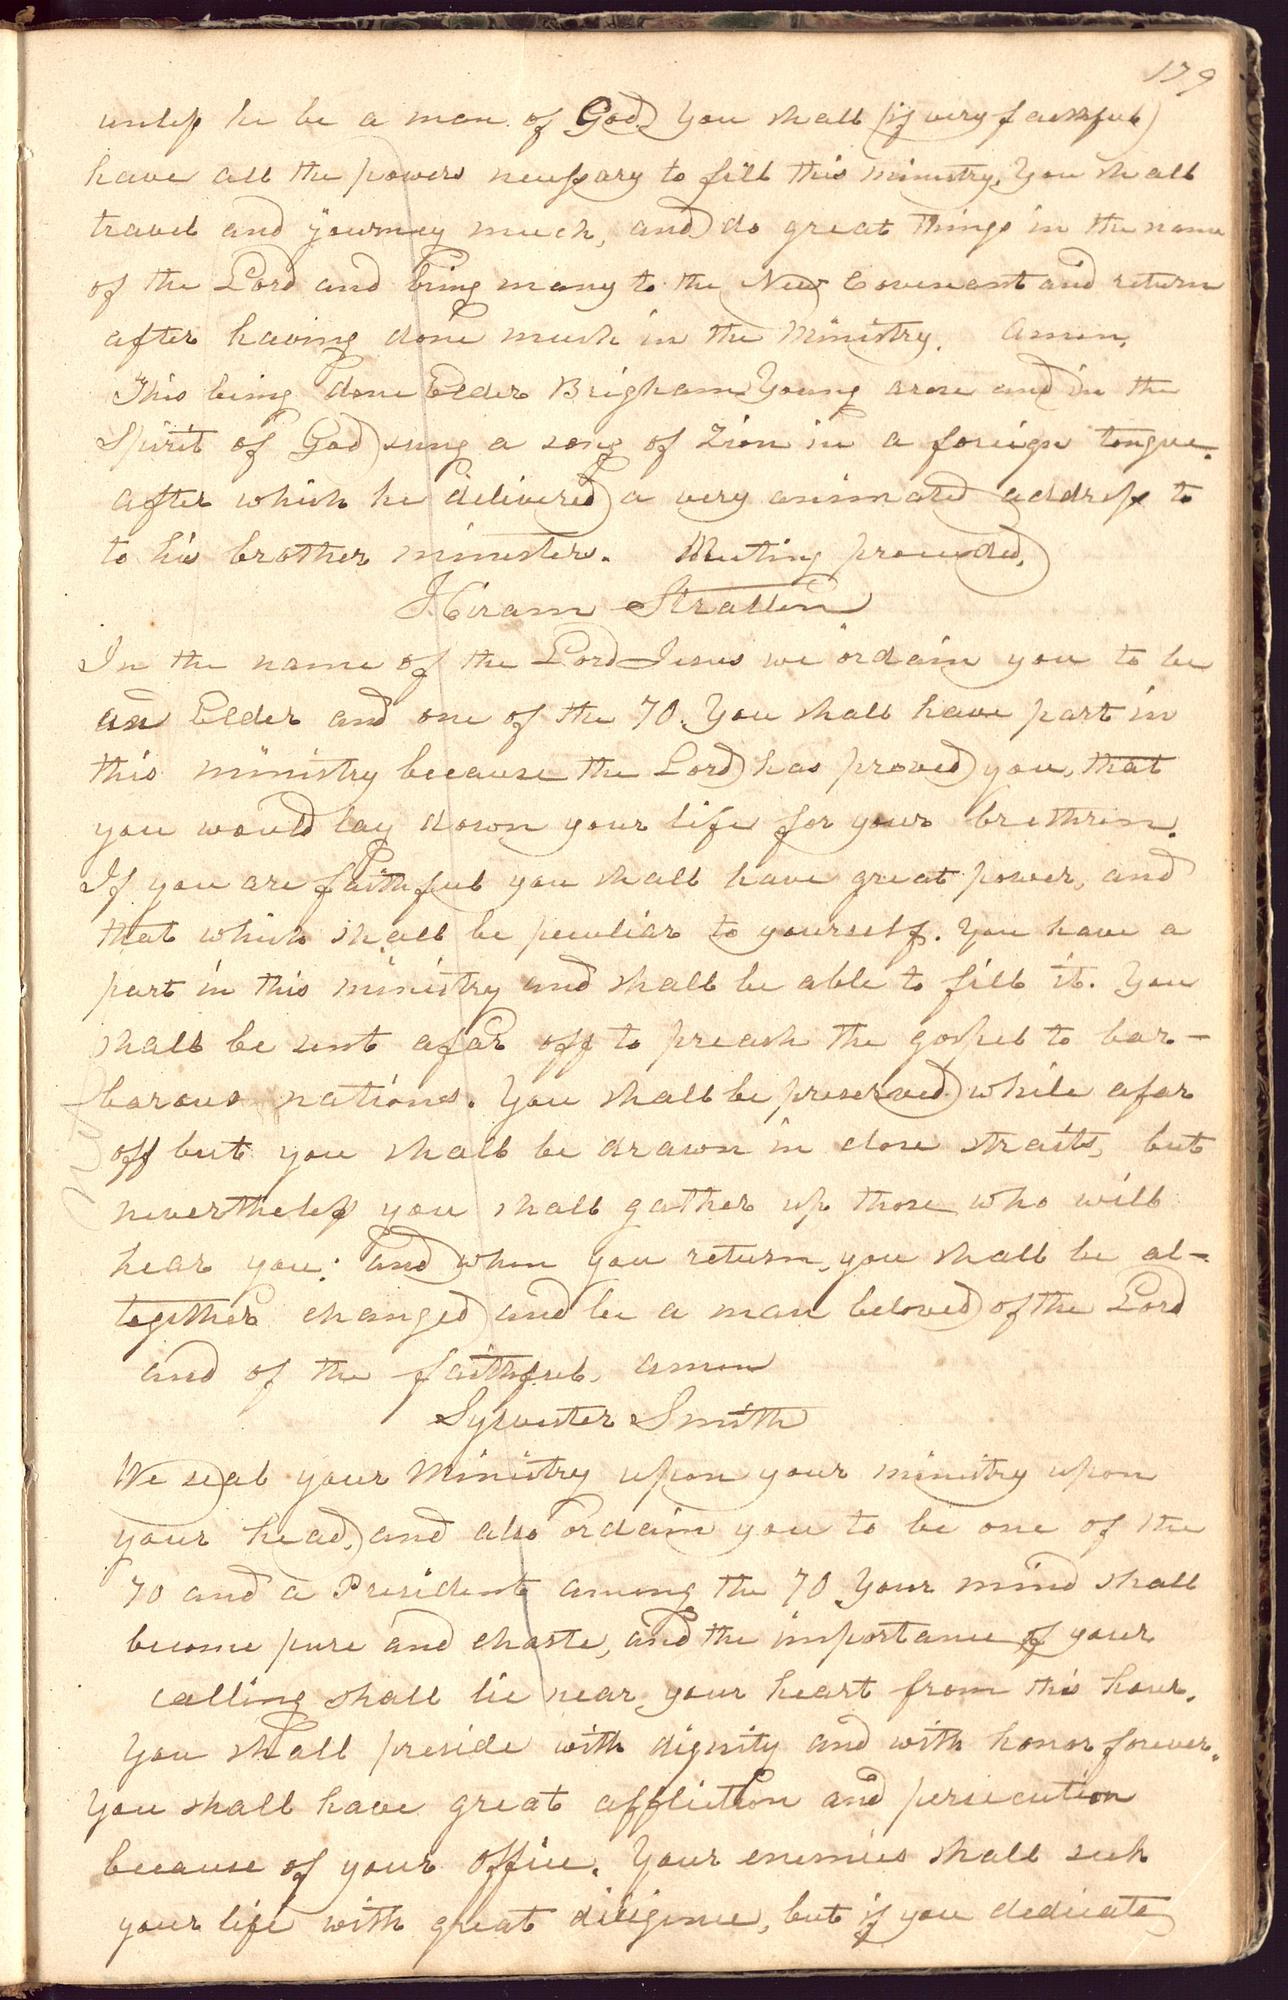 179
unless he be a man of God, You shall (if very faithful)
have all the powers necessary to fill this ministry. You shall
travel and yourney much, and do great things in the name
of the Lord and bring many to the New Covenant and return
after having done much in the Ministry. Amen.
This being done Elder Brigham Young arose and in the
Spirit of God sung a song of Zion in a foreign tongue.
after which he delivered a very animated address to
to his brother ministers. Meeting proceeded.
Hiram Stratten
In the name of the Lord Jesus we ordain you to be
an Elder and one of the 70. You shall have part in
this ministry because the Lord has proved you, that
you would lay down your life for your brethren.
If you are faithful you shall have great power, and
that which shall be peculiar to yourself. You have a
part in this ministry and shall be able to fill it. You
shall be sent afar off to preach the gospel to bar-
barous nations. You shall be preserved while afar
off but you shall be drawn in close straits, but
nevertheless you shall gather up those who will
hear you: and when you return, you shall be al-
together changed and be a man beloved of the Lord
and of the faithful, amen
Sylvester Smith
We seal your Ministry upon your ministry upon
your head, and also ordain you to be one of the
70 and a President among the 70 Your mind shall
become pure and chaste, and the importance of your
calling shall lie near your heart from this hour.
You shall preside with dignity and with honor forever.
You shall have great affliction and persecution
because of your office. Your enemies shall seek
your life with great diligence, but if you dedicate